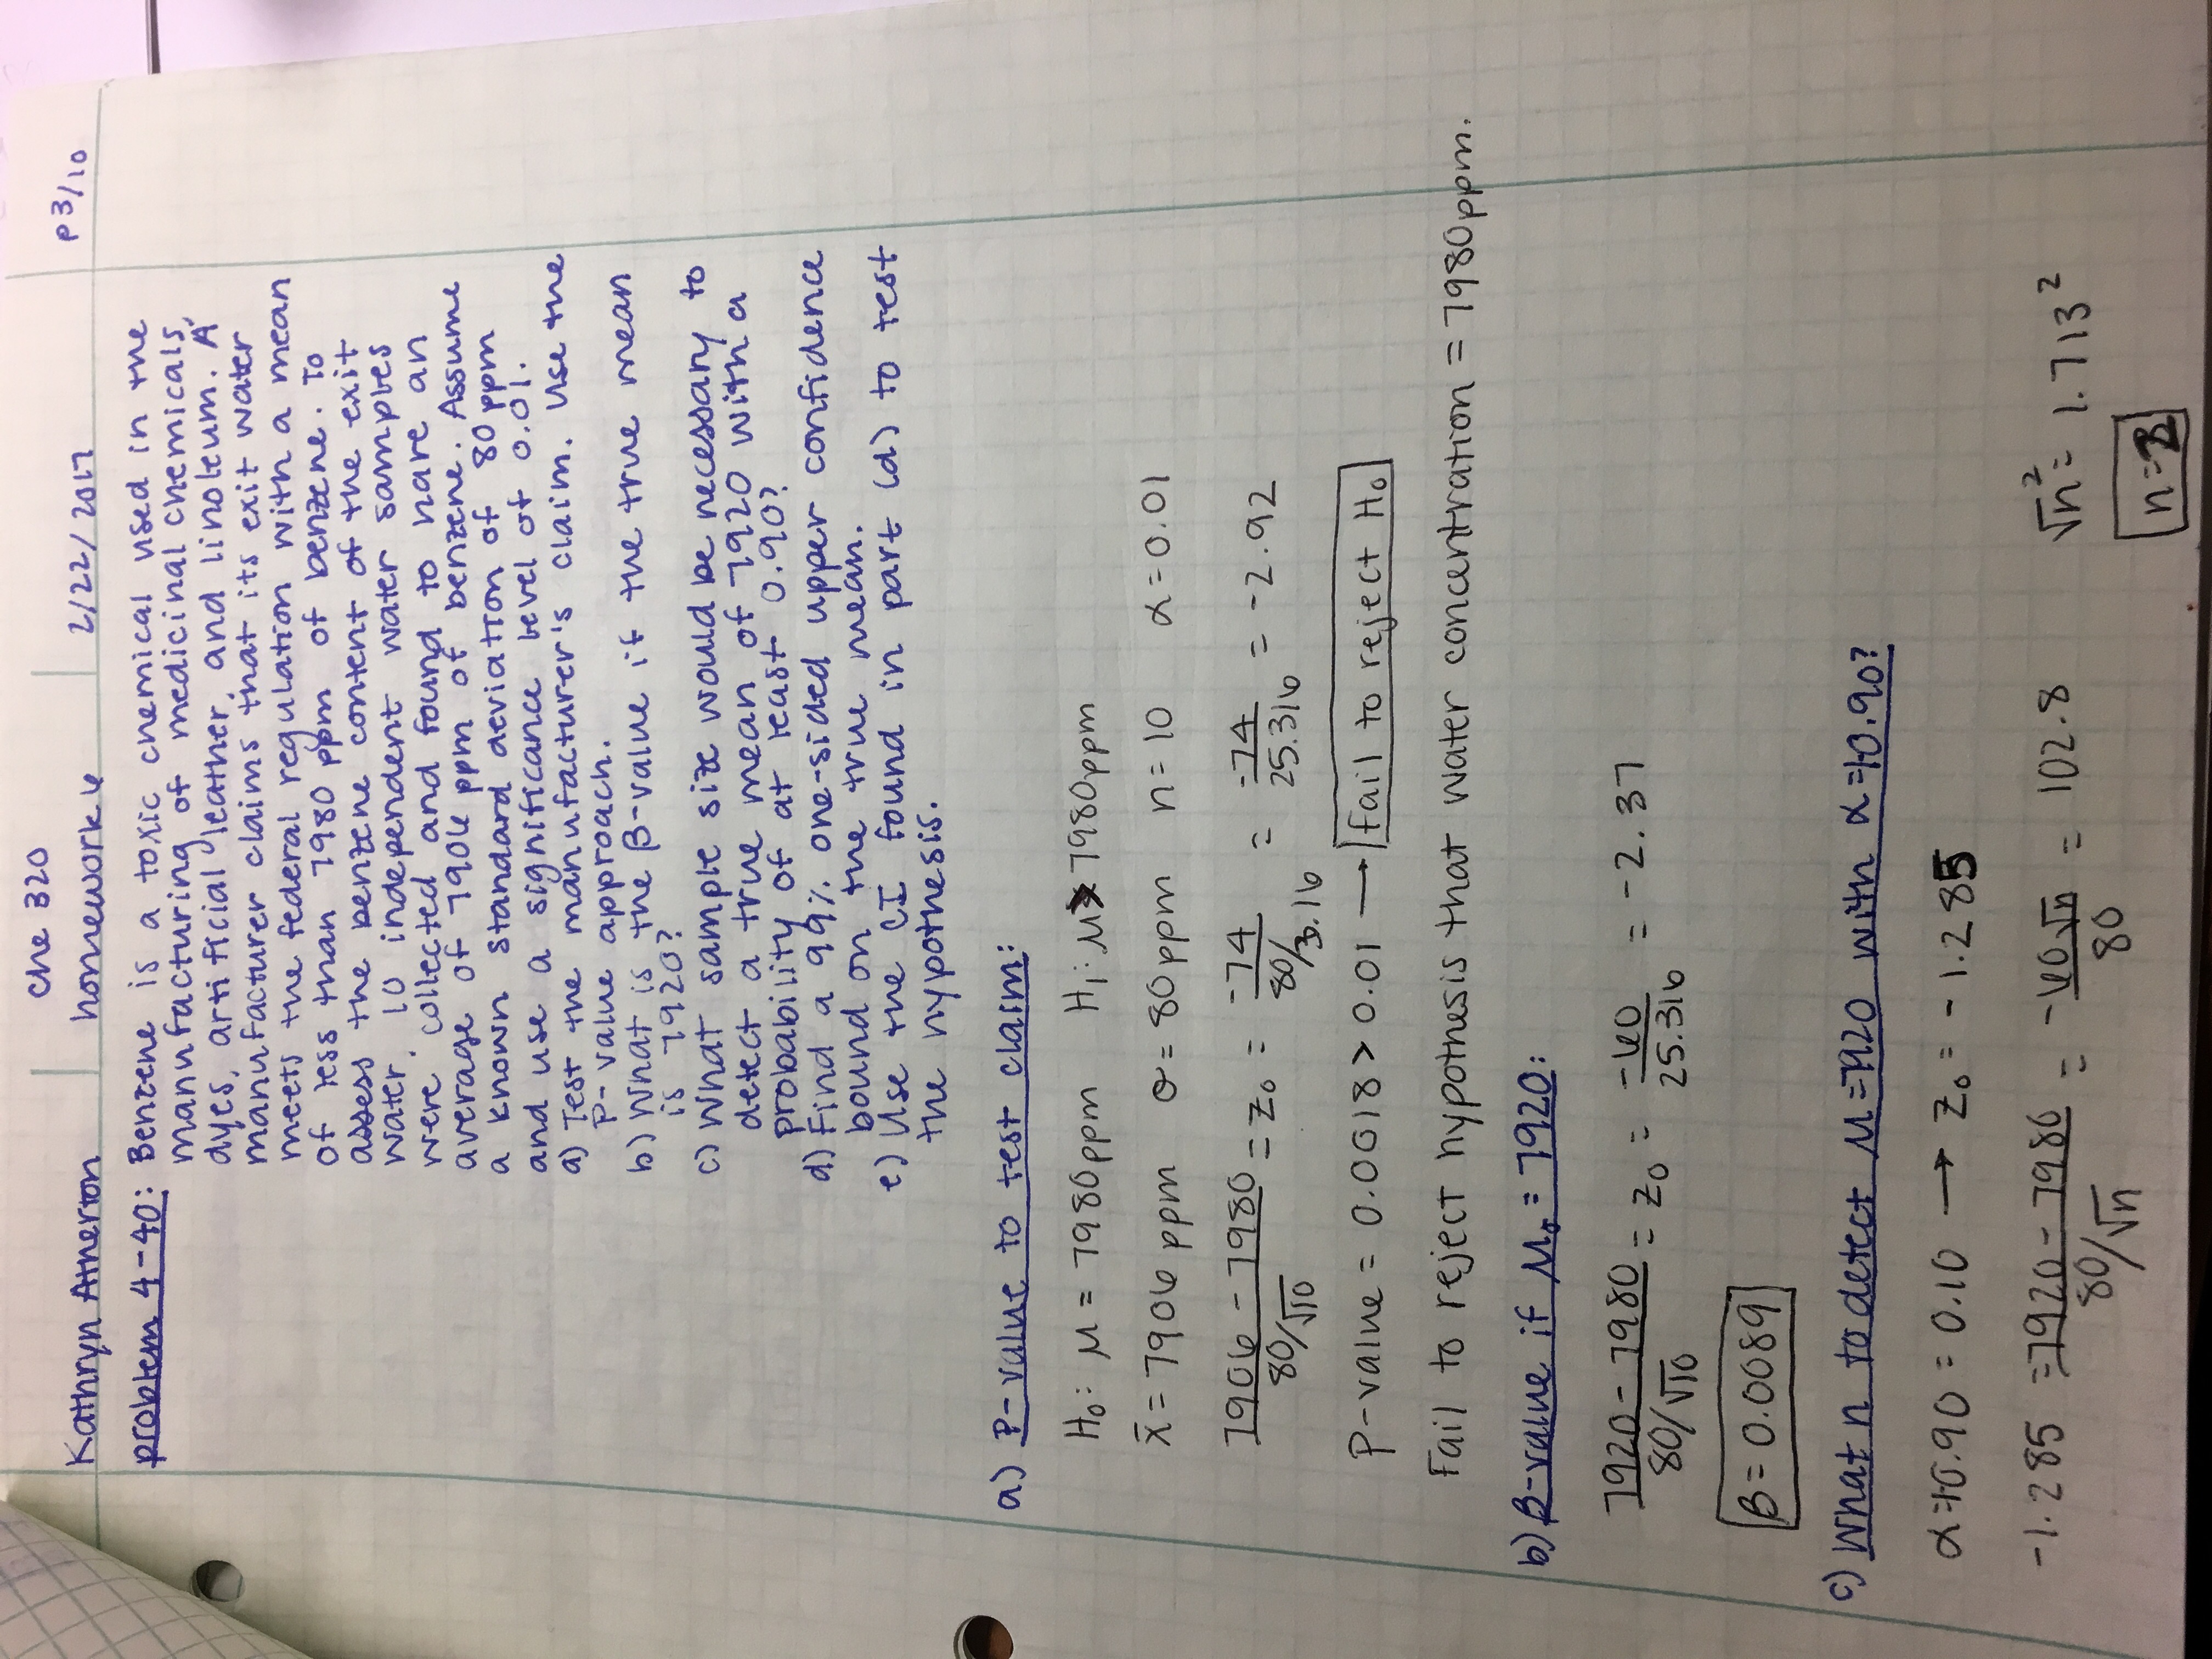 Che 320
Kathryn Atherton homework 6 2/22/2017 p3/10
problem 4-40: Benzene is a toxic chemical used in the
manufacturing of medicinal chemicals,
dyes, artificial leather, and linoleum. A
manufacturer claims that its exit water
meets the federal regulation with a mean
of less than 7980 ppm of benzene. To
assess the benzene content of the exit
water, 10 independent water samples
were collected and found to have an
average of 7906 ppm of benzene. Assume
a known standard deviation of 80 ppm
and use a significance level of 0.01.
a) Test the manufacturer's claim. Use the
P-value approach.
b) What is the β-value if the true mean
is 7920?
c) What sample size would be necessary to
detect a true mean of 7920 with a
probability of at least 0.90?
d) Find a 99% one-sided upper confidence
bound on the true mean.
e) Use the CI found in part (d) to test
the hypothesis.
a) P-value to test claim:
H₀: μ = 7980 ppm H₁: μ > 7980 ppm
x̄ = 7906 ppm σ = 80 ppm n = 10 α = 0.01
7906 - 7980 / 80/√10 = z₀ = -74 / 80/3.16 = -74 / 25.316 = -2.92
P-value = 0.0018 > 0.01 → Fail to reject H₀
Fail to reject hypothesis that water concentration = 7980 ppm.
b) β-value if μ₀ = 7920:
7920 - 7980 / 80/√10 = z₀ = -60 / 25.316 = -2.37
β = 0.0089
c) What n to detect μ = 7920 with α = 1-0.90?
α = 1-0.90 = 0.10 → z₀ = -1.285
-1.285 = 7920 - 7980 / 80/√n = -60√n / 80 = 102.8 √n² = 1.713²
n =